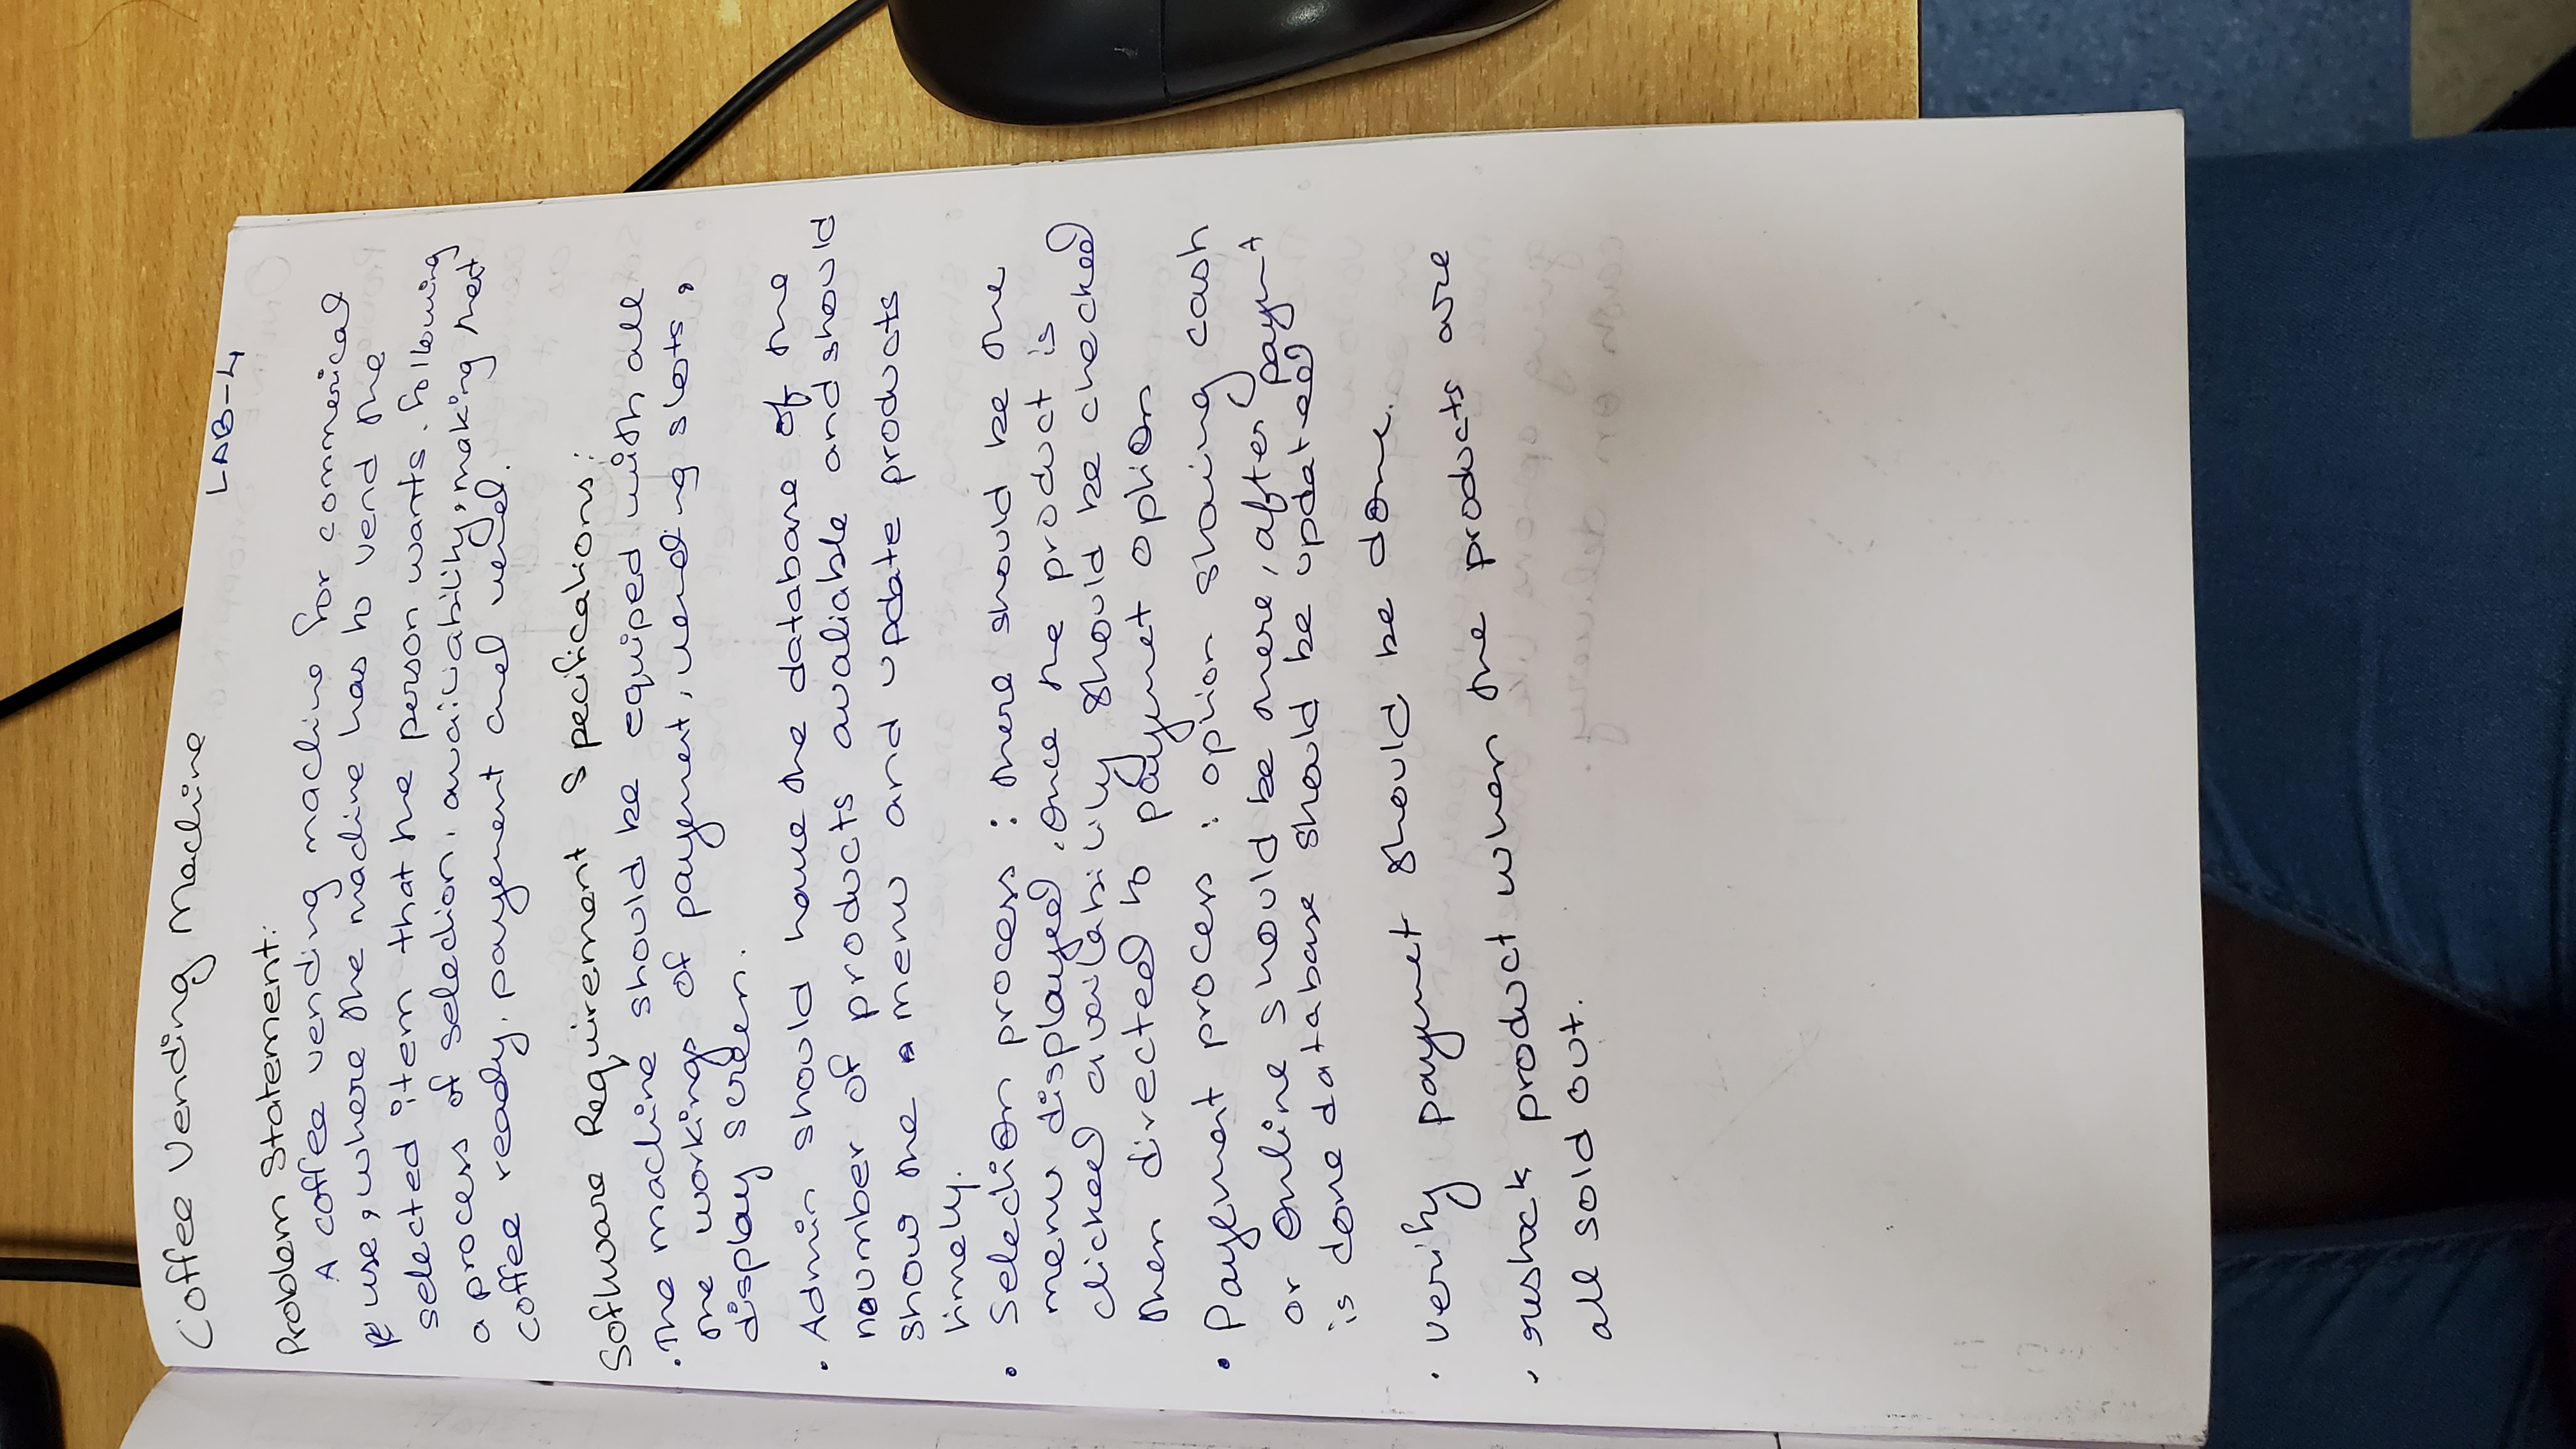 Coffee Vending Machine
LAB-4
Problem Statement:
A coffee vending machine for commerical
use, where the machine has to vend the
selected item that the person wants. following
a process of selection, availiability, making that
coffee ready, payement and vend.
Software Requirement Specifications:
. The machine should be equiped with all
the workings of payement, vending slots,
display screen.
. Admin should have the database of the
noumber of products avaliable and should
show the menu and update products
timely.
• Selection process : there should be the
menu displayed, once the product is
clicked availability should be checked
then directed to paymet option
• Payement process : option showing cash
or online should be there, after paymt
is done database should be updated
. verify paymet should be done.
. restock product when the products are
all sold out.